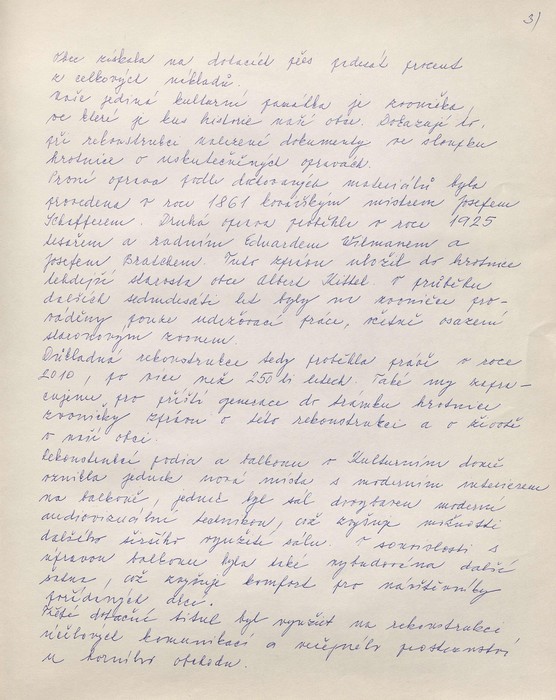 3)
Obec získala na dotacích přes padesát procent
z celkových nákladů.
Naše jediná kulturní památka je zvonička,
ve které je kus historie naší obce. Dokazují to,
při rekonstrukci nalezené dokumenty ve sloupku
hrotnice o uskutečněných opravách.
První oprava podle datovaných materiálů byla
provedena v roce 1861 kovářským mistrem Josefem
Schefferem. Druhá oprava proběhla v roce 1925
tesařem a radním Eduardem Wilmanem a
Josefem Bratchem. Tuto zprávu uložil do hrotnice
tehdejší starosta obce Albert Kittel. V průběhu
dalších sedmdesáti let byly na zvoničce pro-
váděny pouze udržovací práce, včetně osazení
staronovým zvonem.
Důkladná rekonstrukce tedy proběhla právě v roce
2010, po více než 150 ti letech. Také my zapra-
cujeme pro příští generace do trámku hrotnice
zvoničky zprávu o této rekonstrukci a o životě
v naší obci.
Rekonstrukcí podia a balkonu v Kulturním domě
vznikla jednak nová místa s moderním interiérem
na balkoně, jednak byl sál dovybaven moderní
audiovizuální technikou, což zvyšuje možnosti
dalšího širšího využití sálu. V souvislosti s
úpravou balkonu byla také vybudována další
šatna, což zvyšuje komfort pro návštěvníky
pořádaných akcí.
dotační titul byl využit na rekonstrukci
účelových komunikací a veřejného prostranství
u horního obchodu.